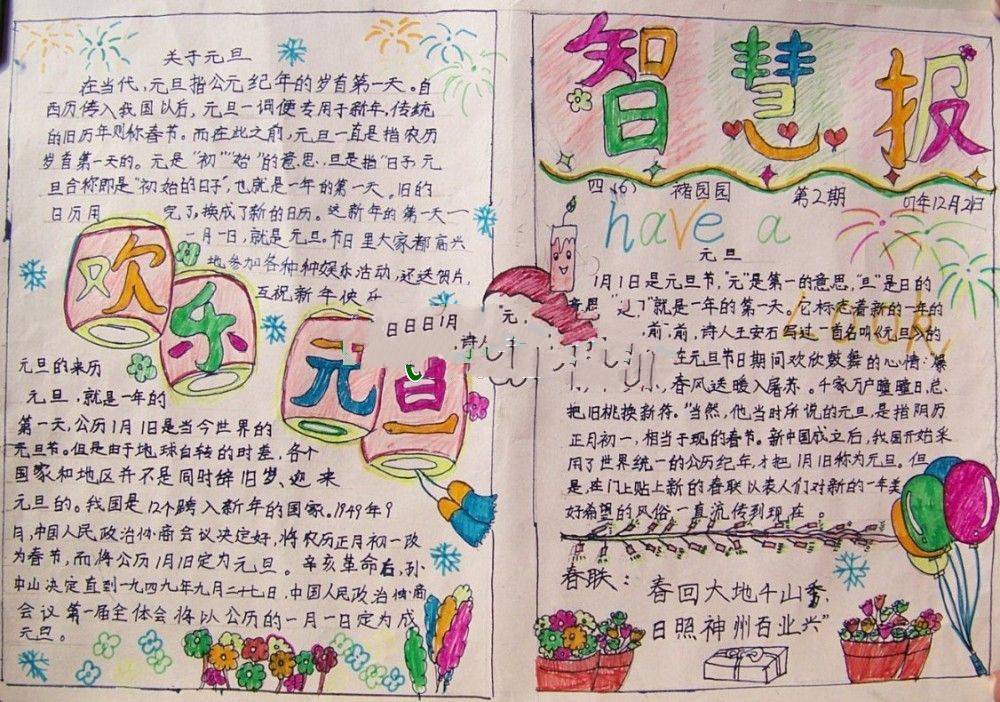 关于元旦
在当代,元旦指公元纪年的岁首第一天。自
西历传入我国以后,元旦一词便专用于新年,传统
的旧历年则称春节。而在此之前,元旦一直是指农历
岁首第一天的。元是“初”“始”的意思,旦是指“日子”元
旦合称即是“初始的日子”,也就是一年的第一天。旧的
日历用 完了,换成了新的日历。这新年的第一天一
一月一日,就是元旦。节日里大家都高兴
地参加各种种娱乐活动,还送贺片,
互祝新年快乐
欢乐元旦
元旦的来历
元旦,就是一年的
第一天,公历1月1日是当今世界的
元旦节。但是由于地球自转的时差,各个
国家和地区并不是同时辞旧岁、迎来
元旦的。我国是12个跨入新年的国家。1949年9
日,中国人民政治协商会议决定好,将农历正月初一改
为春节,而将公历1月1日定为元旦。辛亥革命后,孙
中山决定直到一九四九年九月二十七日,中国人民政治协商
会议第一届全体会将以公历的一月一日定为成
元旦。
智慧报
四(6) 褚园园 第2期 07年12月2日
have a
元旦
1月1日是元旦节,“元”是第一的意思,“旦”是日的
意思 就是一年的第一天。它标志着新的一年的
前,前,诗人王安石写过一首名叫《元旦》的
在元旦节日期间欢欣鼓舞的心情:爆
春风送暖入屠苏。千家万户曈曈日,总
把旧桃换新符。”当然,他当时所说的元旦,是指阴历
正月初一,相当于现的春节。新中国成立后,我国开始采
用了世界统一的公历纪年,才把1月1日称为元旦。但
是,在门上贴上新的春联以表人们对新的一年美
好希望的风俗一直流传到现在。
春联:
春回大地千山秀
日照神州百业兴”